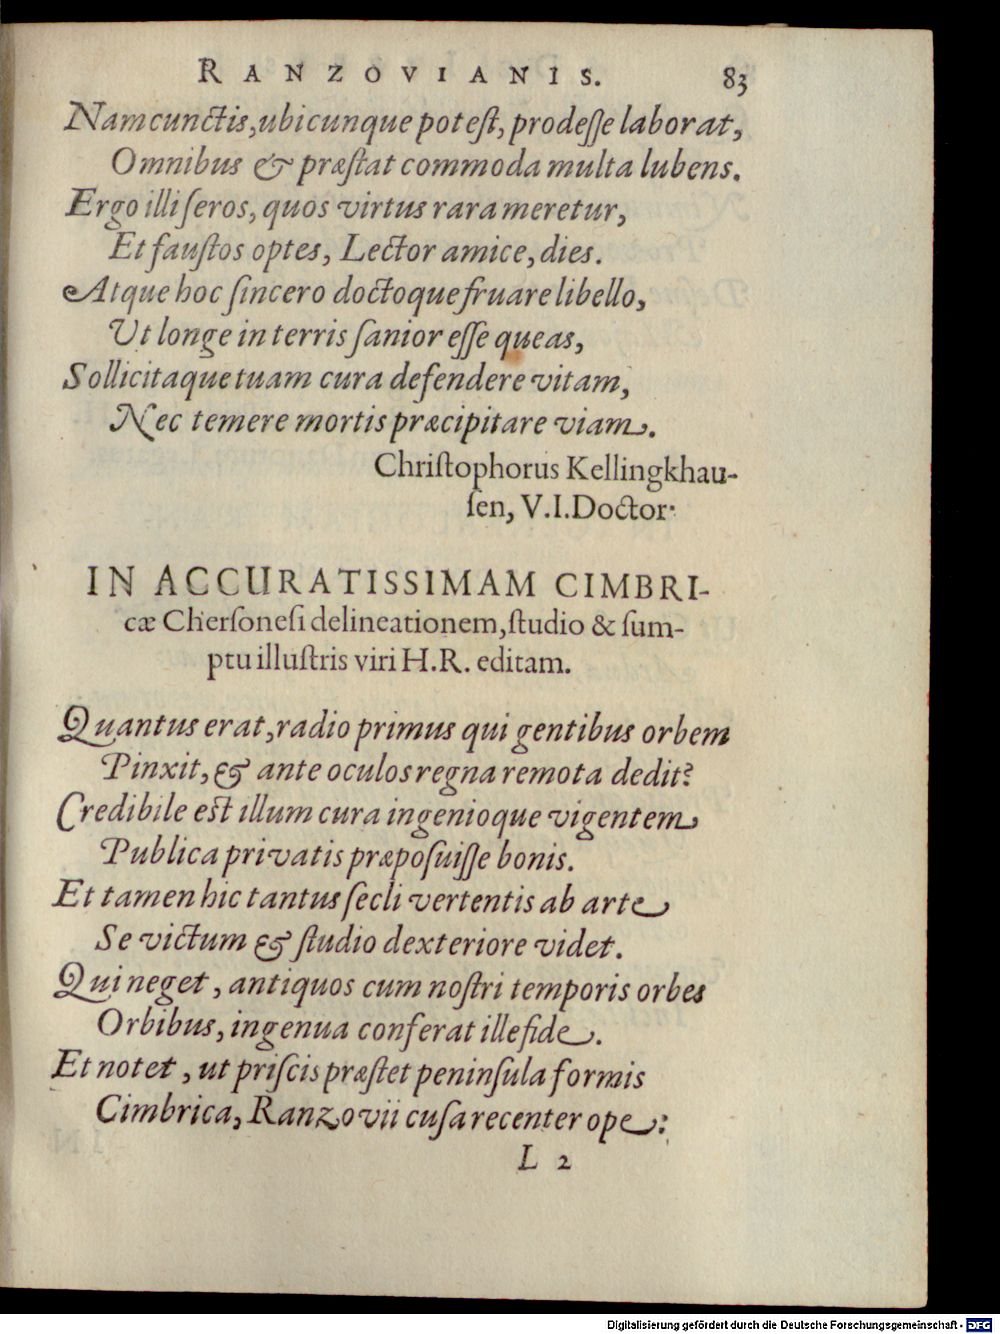 RANZOVIANIS. 83
Nam cunctis, ubicunque potest, prodeſſe laborat,
Omnibus & præſtat commoda multa lubens.
Ergo illi ſeros, quos virtus rara meretur,
Et fauſtos optes, Lector amice, dies.
Atque hoc ſincero doctoque fruare libello,
Ut longe in terris ſanior eſſe queas,
Sollicitaque tuam cura defendere vitam,
Nec temere mortis præcipitare viam.
Chriſtophorus Kellingkhau-
ſen, V.I. Doctor.
IN ACCURATISSIMAM CIMBRI-
cæ Cherſoneſi delineationem, ſtudio & ſum-
ptu illuſtris viri H.R. editam.
Quantus erat, radio primus qui gentibus orbem
Pinxit, & ante oculos regna remota dedit?
Credibile eſt illum cura ingenioque vigentem
Publica privatis præpoſuiſſe bonis.
Et tamen hic tantus ſecli vertentis ab arte
Se victum & ſtudio dexteriore videt.
Qui neget, antiquos cum noſtri temporis orbes
Orbibus, ingenua conferat ille fide.
Et notet, ut priſcis præſtet peninſula formis
Cimbrica, Ranzovii cuſa recenter ope:
L 2
Digitalisierung gefördert durch die Deutsche Forschungsgemeinschaft - DFG